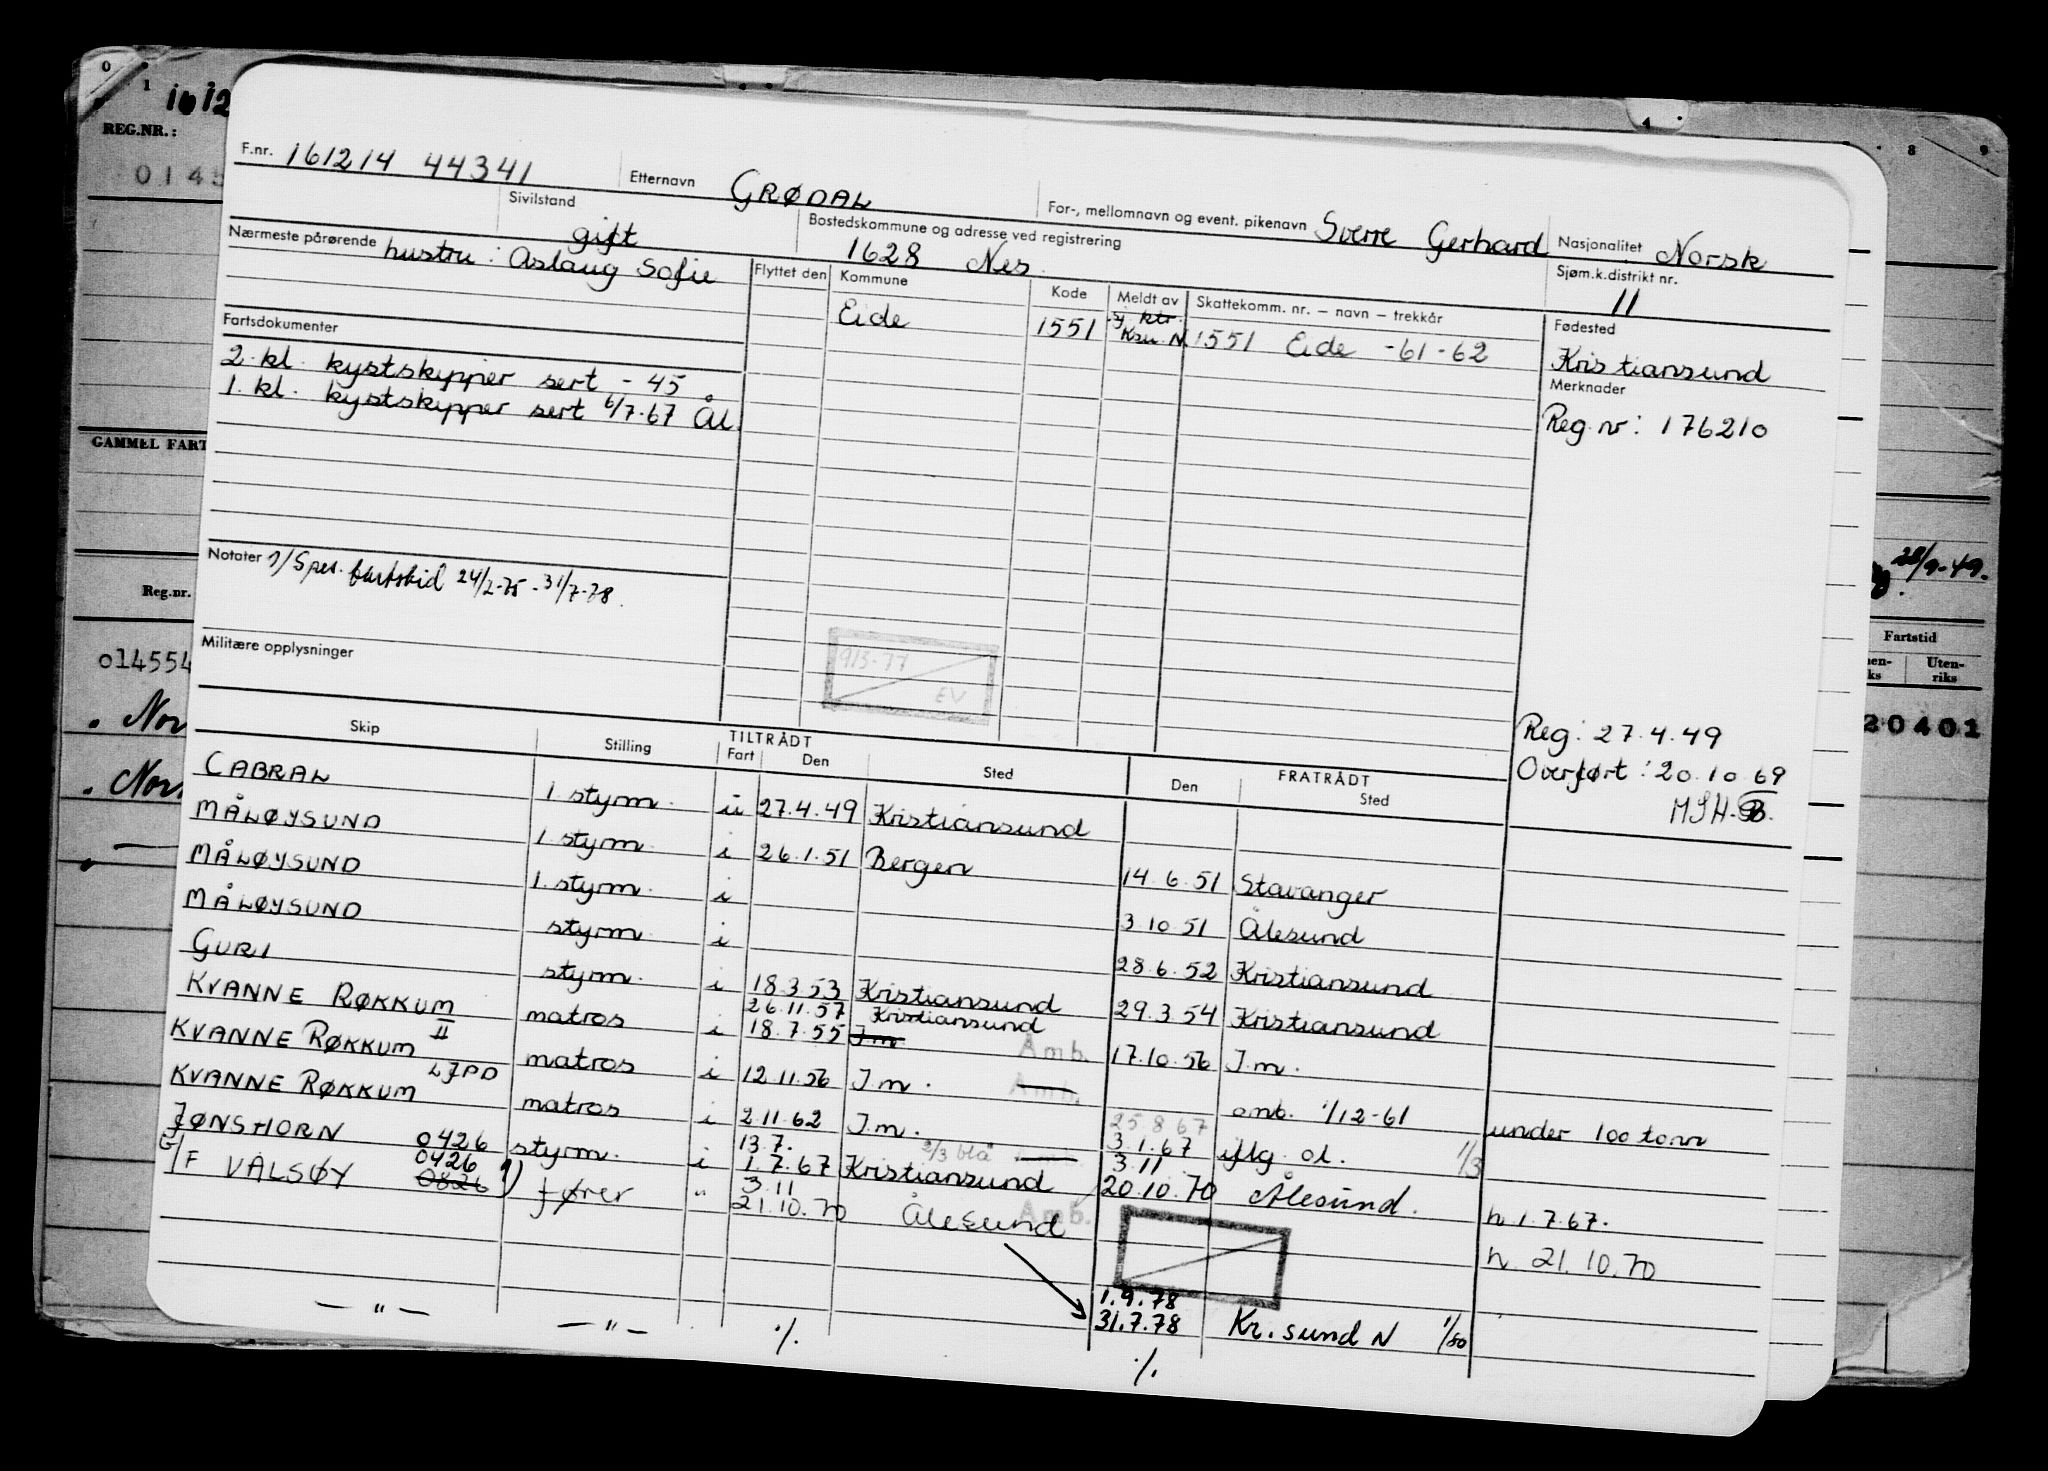 0 1 4 8 9
1612
REG.NR.:
0145
GAMMEL FART
Reg.nr.
014554
Nor
Nor
28/9-49.
Fartstid
Uten-
riks
20401
F.nr. 161214 44341 Etternavn GRØDAL For-, mellomnavn og event. pikenavn Sverre Gerhard Nasjonalitet Norsk
Sivilstand gift Bostedskommune og adresse ved registrering 1628 Nes Sjøm.k.distrikt nr. 11
Nærmeste pårørende hustru: Aslaug Sofie
Flyttet den Kommune Kode Meldt av Skattekomm. nr. – navn – trekkår Fødested
Eide 1551 Sj. ktr. Ksu. N. 1551 Eide -61-62 Kristiansund
Fartsdokumenter
2. kl. kystskipper sert - 45
1. kl. kystskipper sert 6/7.67 Ål.
Merknader
Reg. nr: 176210
Notater 1/Spes. fartstid 24/2-75 - 31/7-78.
913-77
EV
Militære opplysninger
Reg: 27.4.49
Overført: 20.10.69
MSH-B.
Skip Stilling TILTRÅDT FRATRÅDT
Fart Den Sted Den Sted
CABRAL 1. styrm. u 27.4.49 Kristiansund
MÅLØYSUND 1. styrm. i 26.1.51 Bergen 14.6.51 Stavanger
MÅLØYSUND 1. styrm. i 3.10.51 Ålesund
MÅLØYSUND styrm. i 28.6.52 Kristiansund
GURI styrm. i 18.3.53 Kristiansund 29.3.54 Kristiansund
26.11.57 Kristiansund
KVANNE RØKKUM matros i 18.7.55 I.m. Amb. 17.10.56 I.m.
KVANNE RØKKUM II matros i 12.11.56 I.m. Amb. amb. 1/12-61 under 100 tonn
25.8.67
KVANNE RØKKUM LJPD matros i 2.11.62 I.m. 3.1.67 iflg. ol. 1/3
13.7. 2/3 blå 3.11
JØNSHORN 0426 styrm. i 1.7.67 Kristiansund 20.10.70 Ålesund. h 1.7.67.
0426 3.11
G/F VALSØY 0826 1) fører " 21.10.70 Ålesund Amb. h 21.10.70
1.9.78
31.7.78 Kr.sund N 1/80
— " — — " — ./. ./.